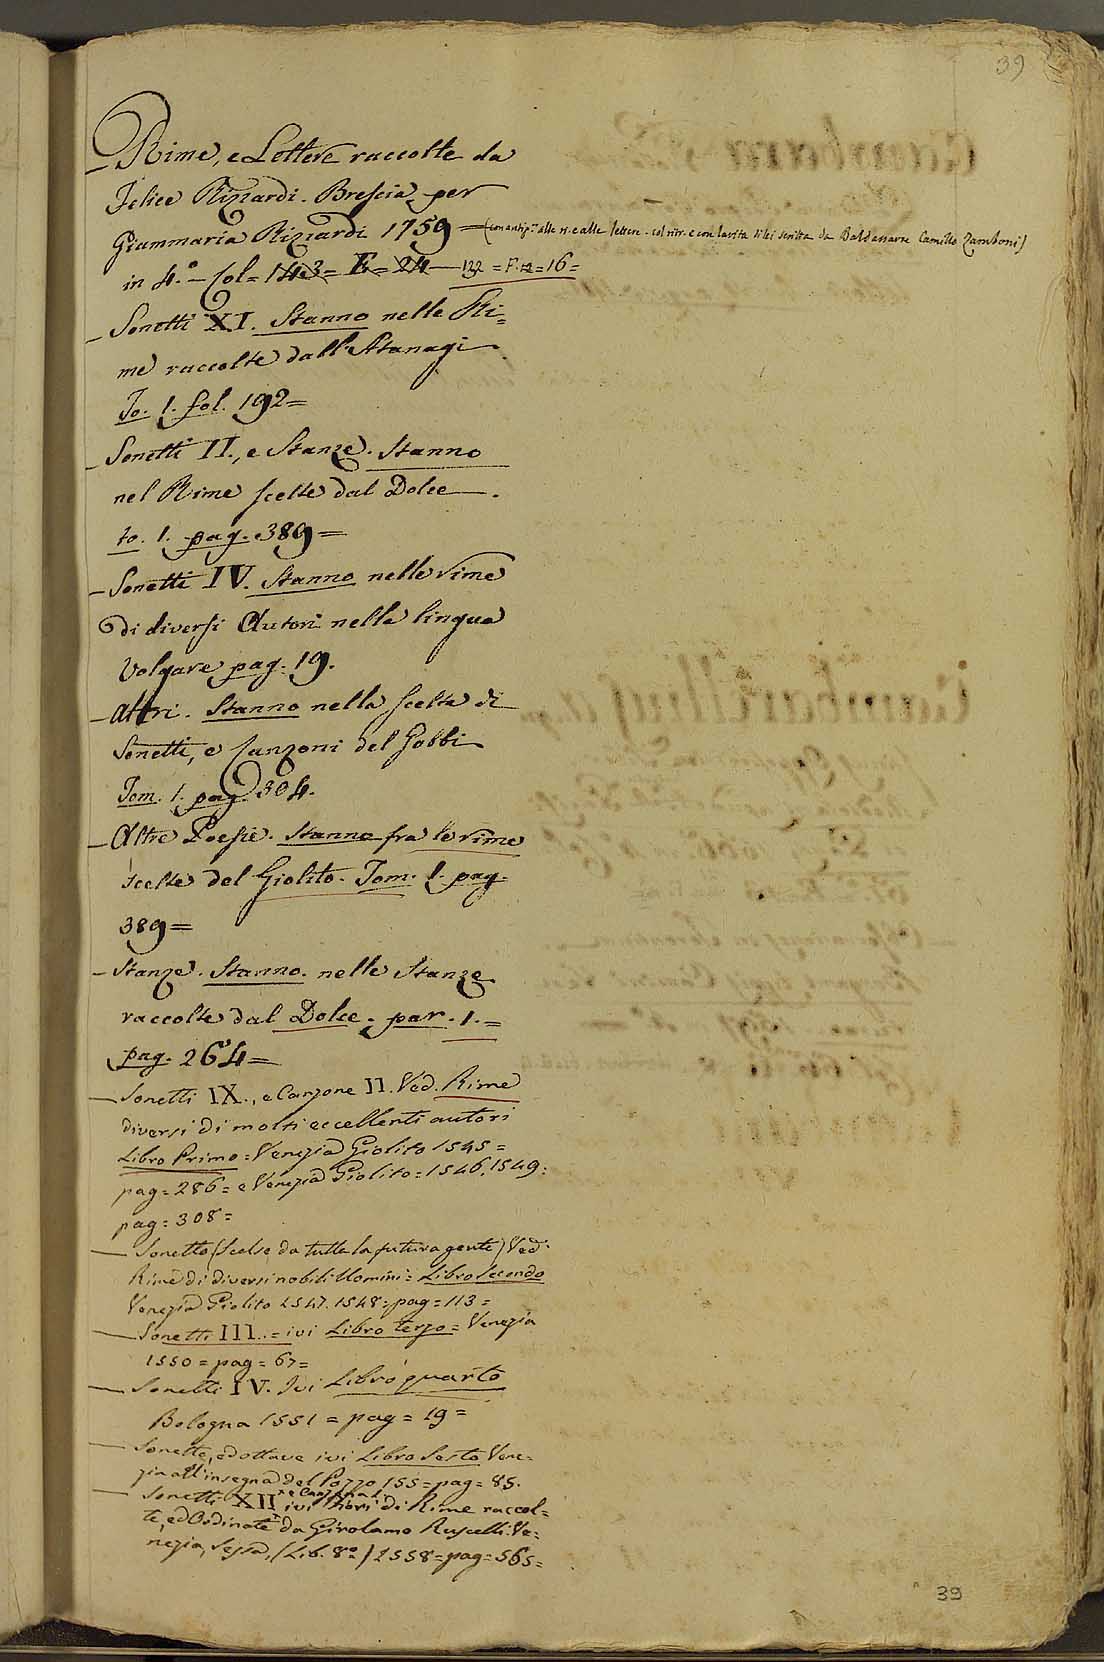 39
— Rime, e Lettere raccolte da
Felice Rizzardi. Brescia per
Giammaria Rizzardi 1759 = (con antip.ne alle r. e alle lettere. col ritr. e con la vita di lei scritta da Baldassarre Camillo Zamboni)
in 4.° — Col = 143 = E = 24 — 132 = F. 12 = 16 =
— Sonetti XI. Stanno nelle Ri=
me raccolte dall'Atanagi.
To. 1. fol. 192 =
— Sonetti II., e Stanze. Stanno
nel Rime scelte dal Dolce.
to. 1. pag. 389 =
— Sonetti IV. Stanno nelle rime
di diversi Autori nella lingua
Volgare pag. 19.
— Altri. Stanno nella scelta di
Sonetti, e Canzoni del Gobbi
Tom. 1. pag. 304.
— Altre Poesie. Stanno fra le rime
scelte del Giolito. Tom. 1. pag.
389 =
— Stanze. Stanno. nelle Stanze
raccolte dal Dolce. par. 1. =
pag. 264 =
— Sonetti IX., e Canzone II. Ved. Rime
diversi di molti eccellenti autori
Libro Primo = Venezia Giolito 1545 =
pag = 286 = e Venezia Giolito = 1546. 1549 =
pag = 308 =
— Sonetto (Scelse da tutta la futura gente) Ved.
Rime di diversi nobili Uomini = Libro Secondo
Venezia Giolito 1547. 1548 = pag = 113 =
— Sonetti III. = ivi Libro terzo = Venezia
1550 = pag = 67 =
— Sonetti IV. Ivi Libro quarto
Bologna 1551 = pag = 19 =
— Sonette, ed ottave ivi Libro Sesto Vene=
zia all'insegna del Pozzo 155 = pag = 85.
— Sonetti XII e Canzona 1. ivi Fiori di Rime raccol=
te, ed Ordinate da Girolamo Ruscelli: Ve=
nezia, Sessa, (Lib. 8°) 1558 = pag = 565 =
39